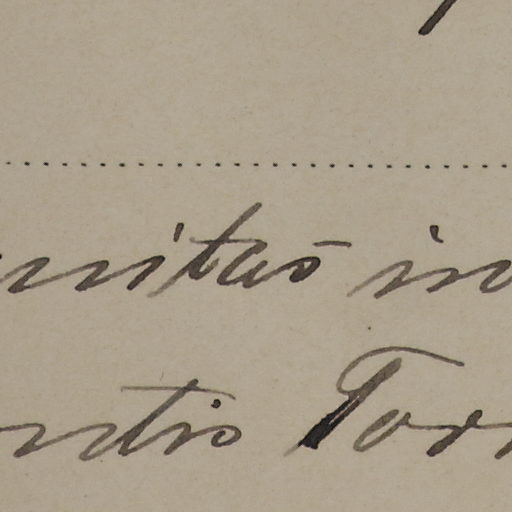 nitas in
ntis Torn